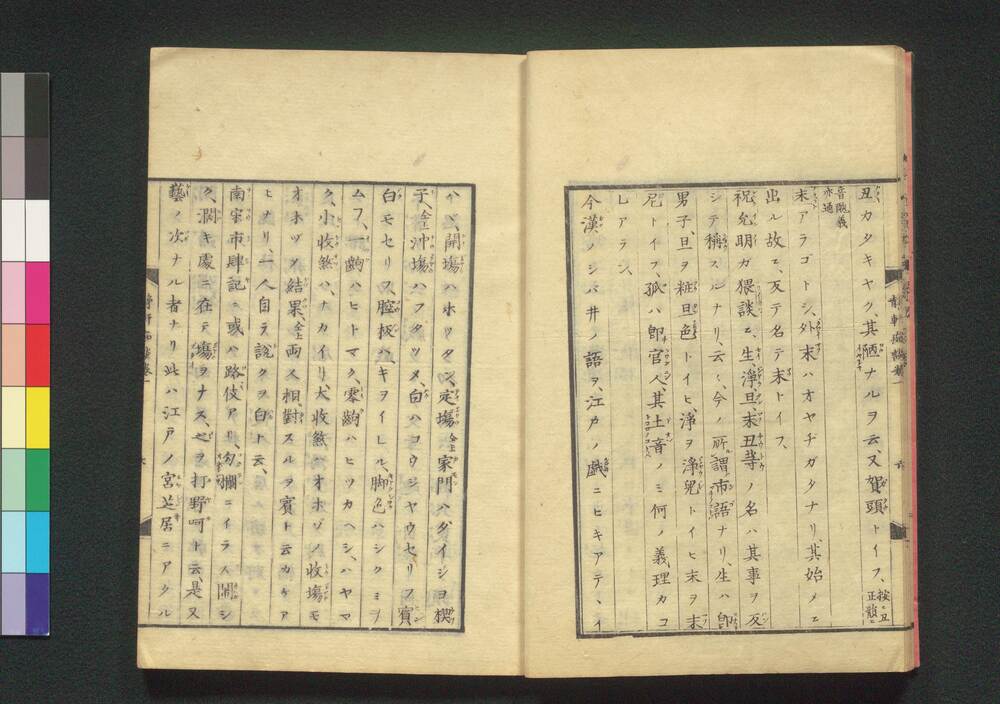 丑カタキヤク、其陋ナルヲ云、又賀頭トイフ、按ニ丑正韻ニ
音醜義亦通
末アラゴトシ、外末ハオヤヂガタナリ、其始メニ
出ル故ニ、反テ名テ末トイフ、
祝允明ガ猥談ニ、生淨旦末丑等ノ名ハ其事ヲ反
シテ稱スルナリ、云々、今ノ所謂市語ナリ、生ハ即
男子、旦ヲ粧旦色トイヒ、淨ヲ淨兒トイヒ末ヲ末
尼トイフ、孤ハ即官人、其土音ノミ何ノ義理カコ
レアラン、
今漢ノシバ井ノ語ヲ、江カノ戯ニヒキアテヽイ
ハヾ、開塲ハホツタン、定塲仝上家門ハダイシヨ楔
子、仝上沖塲ハフタツメ、白ハコウジヤウセリフ賓
白モセリフ、腔板ハキヲイレル、脚色ハシクミヲ
ムフ、一齣ハヒトマク、零齣ハヒツカヘシ、ハヤマ
ク、小收煞ハ、ナカイリ、大收煞ハオホゾノ收塲モ
オホヅメ結果仝上、両人相對スルヲ賓ト云カケア
ヒナリ、一人自ラ說クヲ白ト云、
南宋市肆記ニ或ハ路伎アリ、勾欄ニイラス鬧シ
ク、濶キ處ニ在テ塲ヲナス、之ヲ打野呵ト云、是又
藝ノ次ナル者ナリ此ハ江戸ノ宮芝居ニアタル